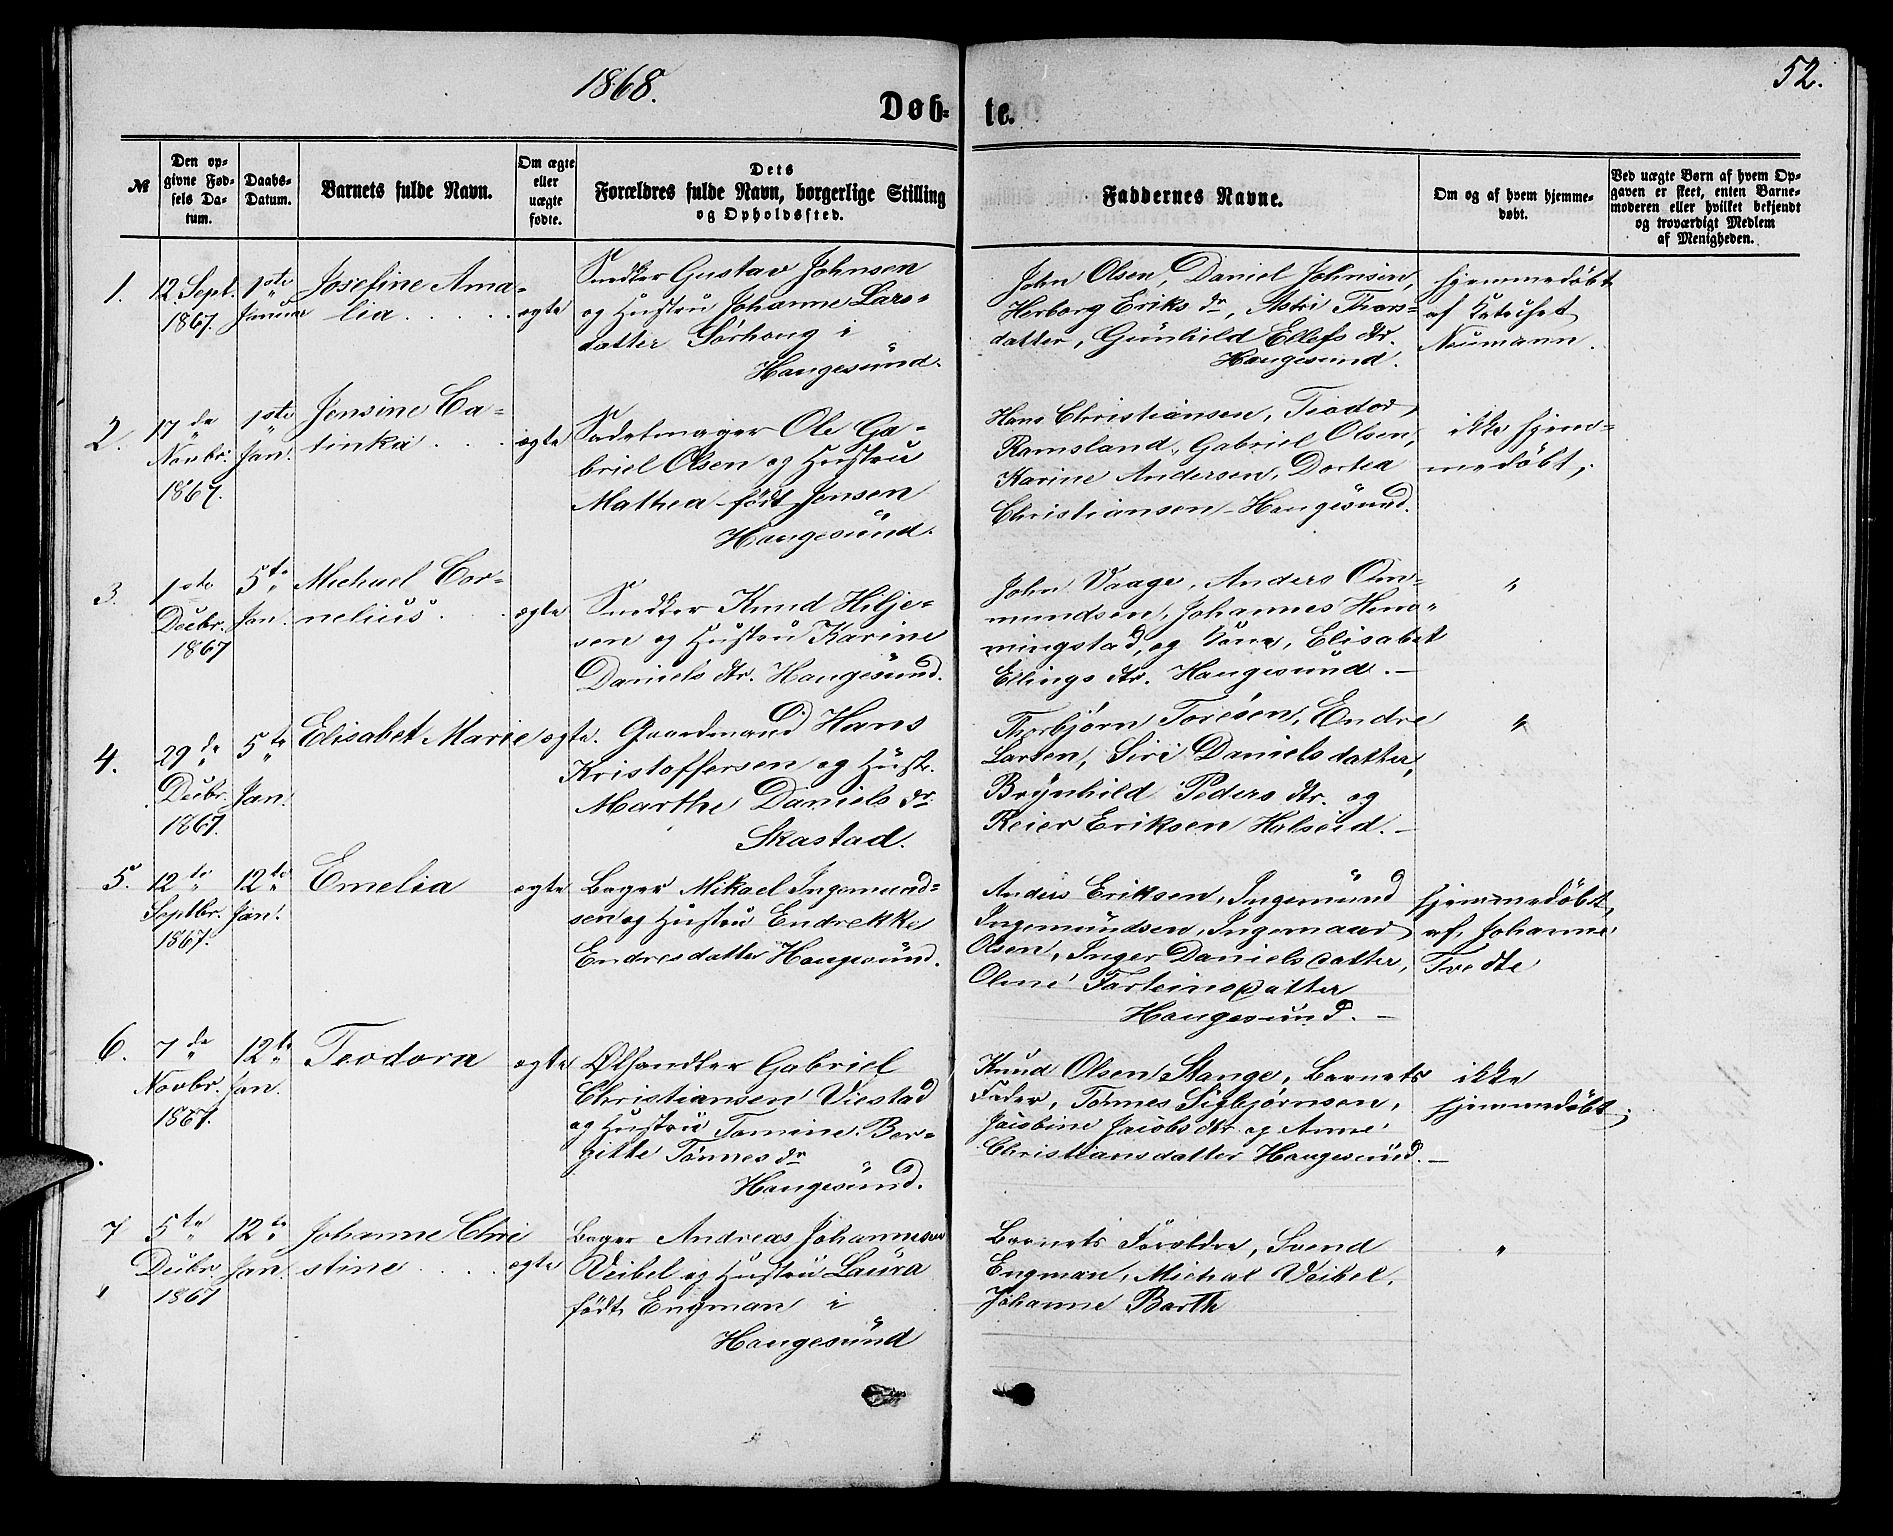 1868.
52.
Døb-
te.
№
Den op-
givne Fød-
sels Da-
tum.
Daabs-
Datum.
Barnets fulde Navn.
Om ægte
eller
uægte
fødte.
Dets
Forældres fulde Navn, borgerlige Stilling
og Opholdssted.
Faddernes Navne.
Om og af hvem hjemme-
døbt.
Ved uægte Børn af hvem Op-
gaven er skeet, enten Barne-
moderen eller hvilket bekjendt
og troværdigt Medlem
af Menigheden.
1.
12 Sept.
1867.
1ste
Januar
Josefine Ama-
lia . . . .
ægte
Snedker Gustav Johnsen
og Hustru Johanne Lars-
datter Sørhoug i
Haugesund.
John Olsen, Daniel Johnsen,
Herborg Eriks dr, Astri Thors-
datter, Gunhild Ellefs dtr.
Haugesund.
hjemmedøbt
af Katechet
Neumann.
2.
17de
Novbr.
1867.
1ste
Jan.
Jensine Ca-
tinka . . .
ægte
Sadelmager Ole Ga-
briel Olsen og Hustru
Mathea født Jensen
Haugesund.
Hans Christiansen, Teodor
Ramsland, Gabriel Olsen,
Karine Andersen, Dortea
Christiansen - Haugesund.
ikke hjem-
medøbt,
3.
1ste
Decbr.
1867
5te
Jan.
Michael Cor-
nelius . . .
ægte
Snedker Knud Hilje-
sen og Hustru Karine
Daniels dtr. Haugesund.
John Vaage, Anders Om-
mundsen, Johannes Hem-
mingstad, og Kone, Elisabet
Ellings dtr. Haugesund. -
"
4.
29de
Decbr.
1867.
5te
Jan.
Elisabet Marie
ægte.
Gaardmand Hans
Kristoffersen og Hustr.
Marthe Daniels dr.
Skastad.
Thorbjørn Toresen, Endre
Larsen, Siri Danielsdatter,
Brynhild Peders dtr. og
Reier Eriksen Halseid. -
"
5.
12te
Septbr.
1867.
12te
Jan.
Emelia
ægte
Bager Mikael Ingemund-
sen og Hustru Endrekke
Endresdatter Haugesund.
Anders Eriksen, Ingemund
Ingemundsen, Ingemaar
Olsen, Inger Danielsdatter,
Olene Torleinsdatter
Haugesund. -
hjemmedøbt,
af, Johanne
Tvedte
6.
7de
Novbr.
1867.
12te
Jan.
Teodora
ægte
Ølhandler Gabriel
Christiansen Viestad
og Hustru Tomine Ber-
gitte Tønnes dr
Haugesund.
Knud Olsen Stange, Barnets
Fader, Tønnes Sigbjørnsen,
Jacobine Jacobs dtr. og Anne
Christiansdatter Haugesund. -
ikke
hjemmedøbt;
7
5te
Decbr.
1867
12te
Jan.
Johanne Chri
stine . . . .
ægte
Bager Andreas Johannesen
Veibel og Hustru Laura
født Engman i
Haugesund
Barnets Forældre, Svend
Engman, Michal Veibel,
Johanne Barth
"